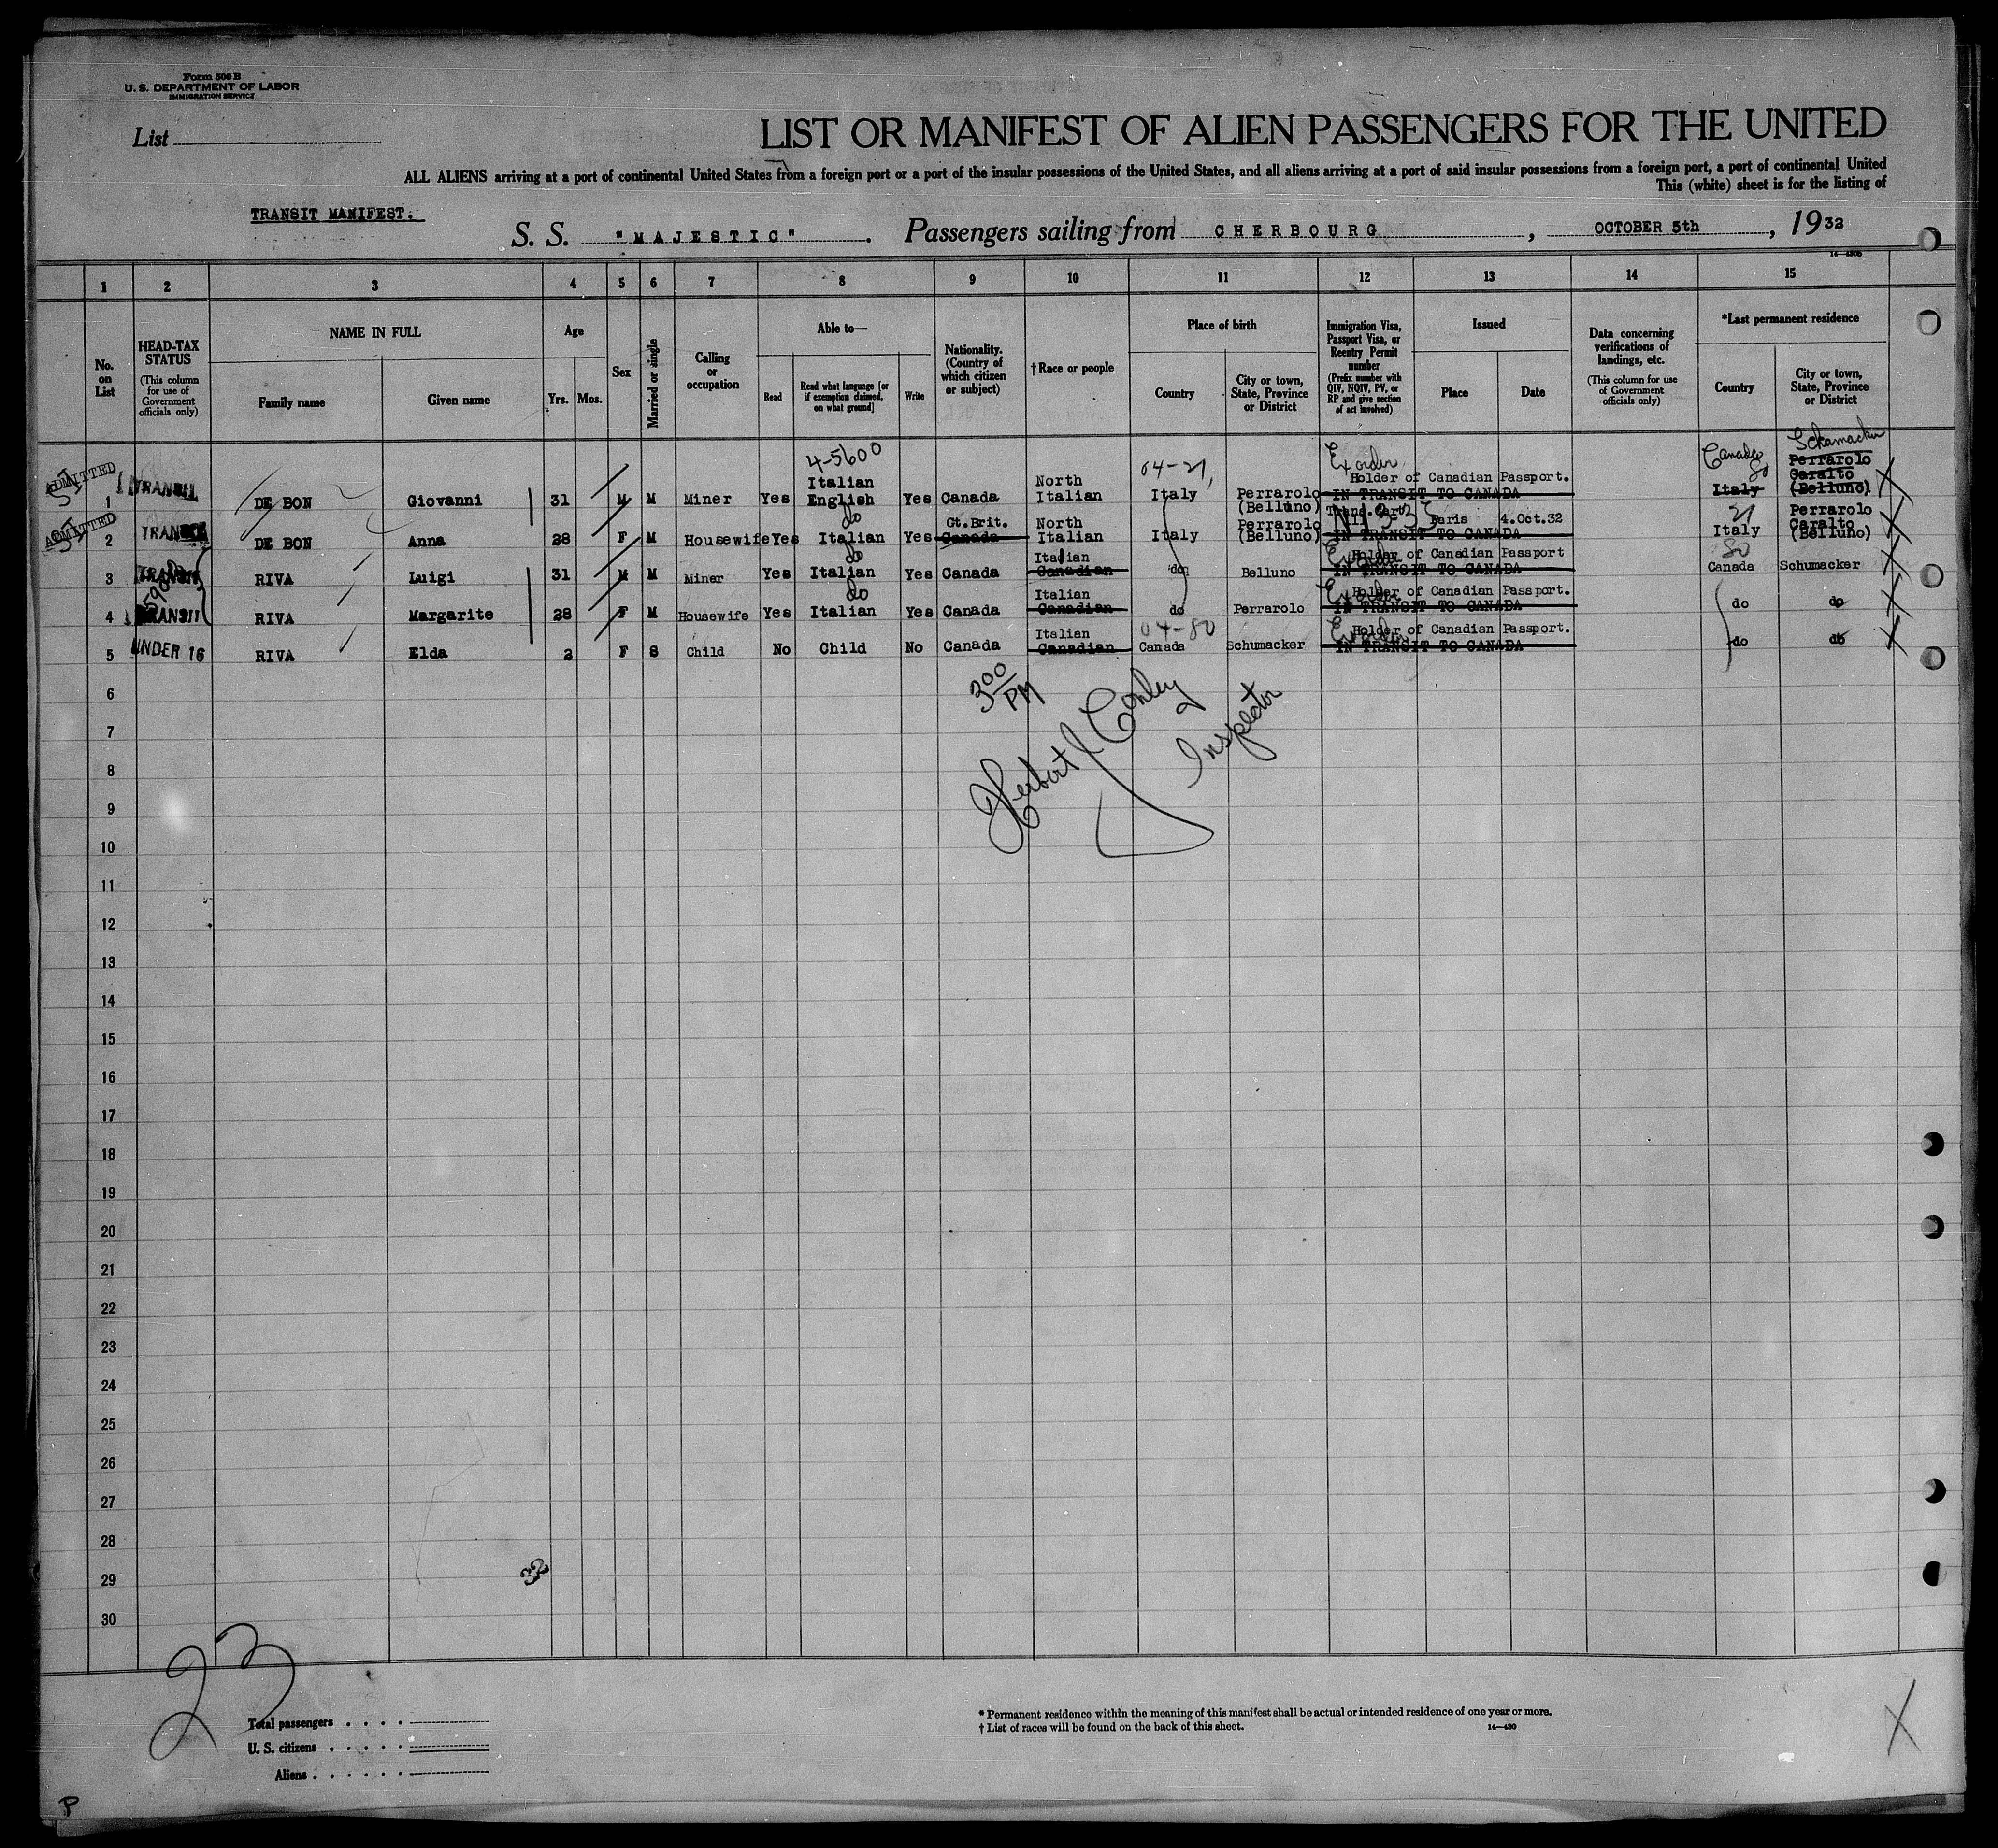 Form 500 B
U. S. DEPARTMENT OF LABOR
IMMIGRATION SERVICE
List
LIST OR MANIFEST OF ALIEN PASSENGERS FOR THE UNITED
ALL ALIENS arriving at a port of continental United States from a foreign port or a port of the insular possessions of the United States, and all aliens arriving at a port of said insular possessions from a foreign port, a port of continental United
This (white) sheet is for the listing of
TRANSIT MANIFEST.
S. S. "MAJESTIC". Passengers sailing from CHERBOURG, OCTOBER 5th, 1932
1 2 3 4 5 6 7 8 9 10 11 12 13 14 15
No. on List
HEAD-TAX STATUS
(This column for use of Government officials only)
NAME IN FULL
Family name Given name
Age
Yrs. Mos.
Sex
Married or single
Calling or occupation
Able to—
Read
Read what language [or if exemption claimed, on what ground]
Write
Nationality. (Country of which citizen or subject)
†Race or people
Place of birth
Country
City or town, State, Province or District
Immigration Visa, Passport Visa, or Reentry Permit number
(Prefix number with QIV, NQIV, PV, or RP and give section of act involved)
Issued
Place Date
Data concerning verifications of landings, etc.
(This column for use of Government officials only)
*Last permanent residence
Country
City or town, State, Province or District
4-5600 04-21, Ex order Canada 80 Schumacker
ADMITTED TRANSIT 1 DE BON Giovanni 31 M M Miner Yes Italian English Yes Canada North Italian Italy Perrarolo (Belluno) Holder of Canadian Passport. IN TRANSIT TO CANADA Italy Perrarolo Caralto (Belluno)
ADMITTED TRANSIT 2 DE BON Anna 28 F M Housewife Yes do Italian Yes Gt. Brit. Canada North Italian Italy Perrarolo (Belluno) Trans. Cert. Paris 4.Oct.32 IN TRANSIT TO CANADA 21 Italy Perrarolo Caralto (Belluno)
TRANSIT 3 RIVA Luigi 31 M M Miner Yes do Italian Yes Canada Italian Canadian do Belluno Ex order Holder of Canadian Passport IN TRANSIT TO CANADA 80 Canada Schumacker
TRANSIT 4 RIVA Margarite 28 F M Housewife Yes do Italian Yes Canada Italian Canadian do Perrarolo Ex order Holder of Canadian Passport. IN TRANSIT TO CANADA do do
UNDER 16 5 RIVA Elda 2 F S Child No Child No Canada Italian Canadian 04-80 Canada Schumacker Ex order Holder of Canadian Passport. IN TRANSIT TO CANADA do do
6
3 00 PM
7
Herbert J Conley
Inspector
8
9
10
11
12
13
14
15
16
17
18
19
20
21
22
23
24
25
26
27
28
29
32
30
23
Total passengers
U. S. citizens
Aliens
* Permanent residence within the meaning of this manifest shall be actual or intended residence of one year or more.
† List of races will be found on the back of this sheet.
14—430
X
P